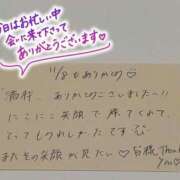 今日はお忙しい中
会いに来て下さって
ありがとうございます♡
11/8 ありがとう♡
「酒粋... ありがとうございました!!
にこにこ笑顔で 帰ってくれて、
とってもうれしかったです
またその笑顔が見たい♡
皆様 Thank
you♡